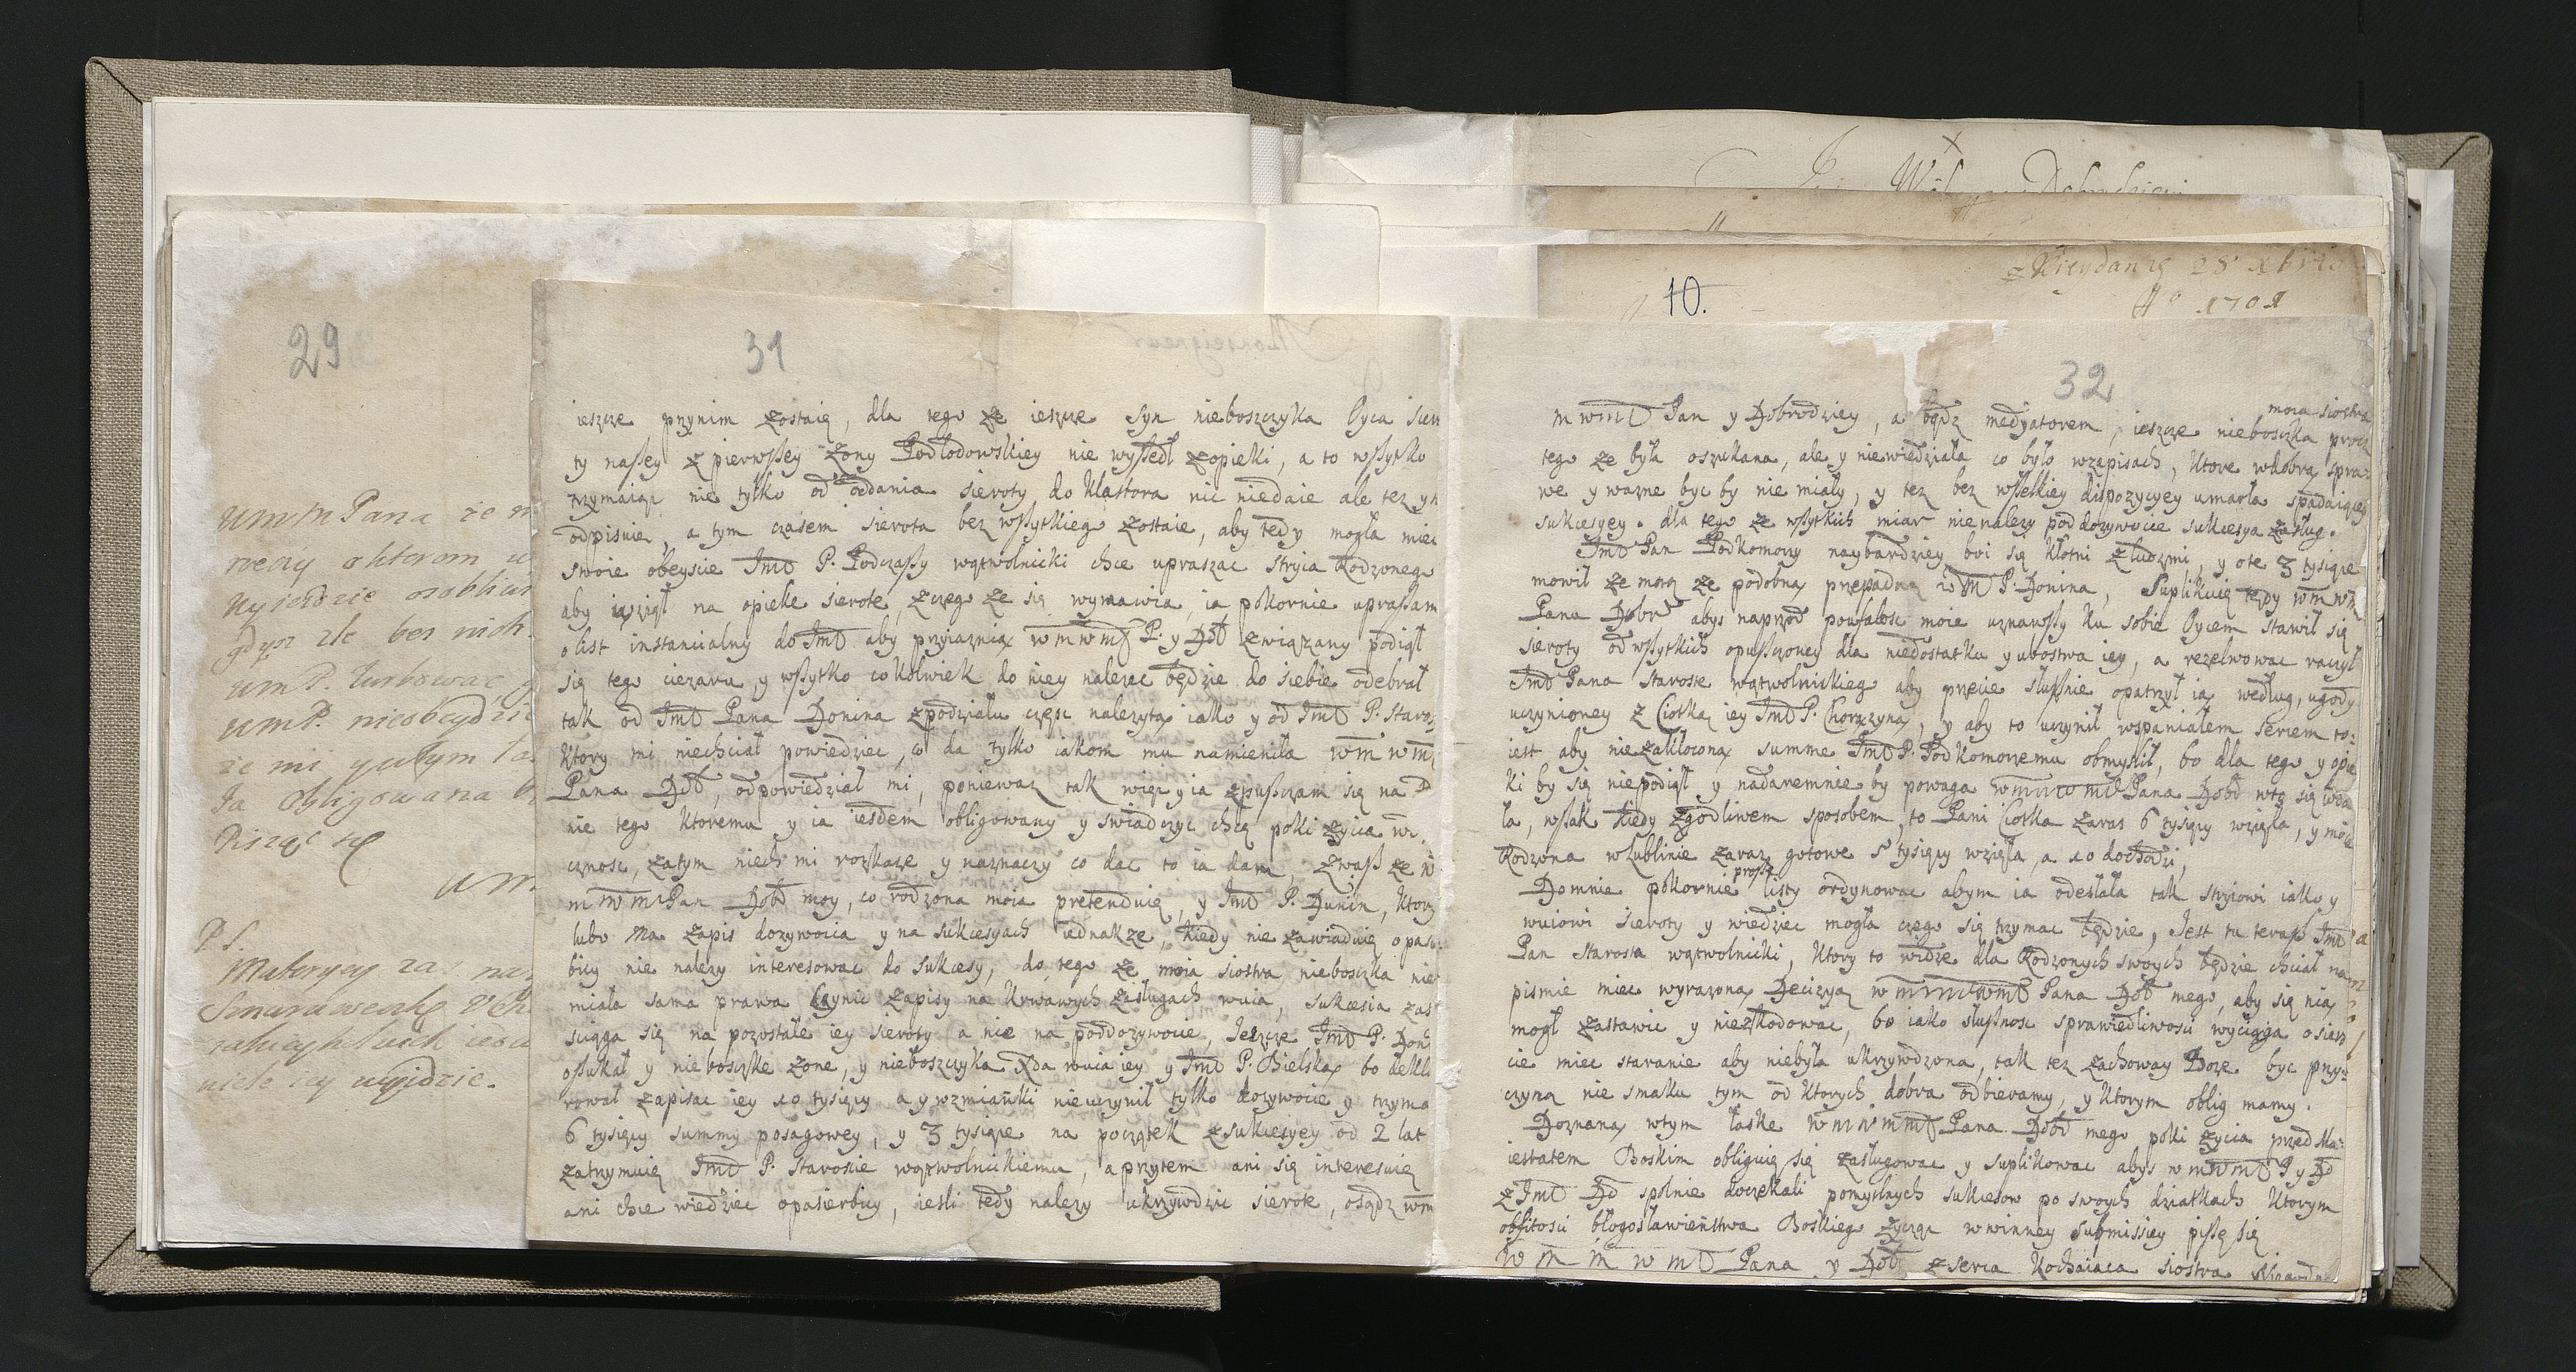 29
UmM Pana ze
rzeczy o ktorem
gdysz zle bes nich
um P. turbowac,
um P. nieobeydzie
ze mi y w tym
Ja obligowana
Pisząc się
P S.
wiele iey uyidzie.
31
ieszcze przynim zostaię, dla tego że ieszcze syn nieboszczyka Oyca sier
ty naszey z pierwszey Żony Podlodowskiey nie wyszedł zopieki, a to wszytko
trzymaiąc nie tylko od oddania sieroty, do klasztora nic niedaie ale tez y n
odpisuie, a tym czasem sierota bez wszytkiego zostaie, aby tedy mogła miec
swoie obeyscie Jmć P. Podczaszy wątwolnicki chce upraszac stryia Rodzonego
aby ią wziął na opieke sierote, z czego że się wymawia, ia pokornie upraszam
o list instancialny do Jmć aby przyiaznią wmwmć P. y Dob związany podiął
się tego ciezaru, y wszytko cokolwiek do niey nalezec będzie do siebie odebrał
tak od Jmć Pana Donina z podziału częsc nalezytą iako y od Jmć P. Staros
ktory mi niechciał powiedziec, co da tylko iakom mu namieniła wm wm
Pana Dob, odpowiedział mi, poniewaz tak więc y ia zpuszczam się na P
nie tego ktoremu y ia iestem obligowany y swiadczyc chcę poki zycia w
cznosc, zatym niech mi rozkaze y naznaczy co dac to ia dam, zwasz ze w
m w m Pan Dob moy, co rodzona moia pretenduię, y Jmć P. Dunin, ktory
lubo ma zapis dozywocia y na sukcesyach iednakze, kiedy nie zawiaduię o pasier
bicy nie nalezy interesowac do sukcesy, do tego że moia siostra nieboszka nie
miała sama prawa czynic zapisy na krwawych zasługach wuia, sukcesia zas
sciąga się na pozostałe iey sieroty a nie na poddozywocie, Jeszcze Jmć P. Don
oszukał y nieboszke żone, y nieboszczyka Xda wuia iey y Jmć P. Bielską bo dekla
rował zapisac iey 10 tysięcy a y wzmianki nieuczynił tylko dozywocie y trzyma
6 tysięcy summy posagowey, y 3 tysiące na początek z sukcesyey od 2 lat
zatrzymuię Jmć P. Staroscie wątwolnickiemu, a przytem ani się interesuię
ani chce wiedziec opasierbicy, iesli tedy nalezy ukrzywdzic sierote, osądz wm
z Kieydan 28 Xbris
Aº 1701
10.
32
m wmć Pan y Dobrodziey, a bądz medyatorem, ieszcze nieboszka moia siostra procz
tego ze była oszukana, ale y niewiedziała co było wzapisach, ktore wdobrą spra-
we y wazne byc by nie miały, y tez bez wszelkiey dispozycyey umarła spadaiącey
sukcesyey. dla tego że wszytkich miar nienalezy pod dozywocie sukcesya zasług.
Jmć Pan Podkomory naybardziey boi się kłotni z ludzmi, y ote 3 tysiące
mowił ze mogą ze podobną przepadną u Jm P. Donina, Suplikuię tedy wm wm
Pana Dobr abys naprzod poufałosc moie uznawszy ku sobie Oycem stawił się
sieroty od wszytkich opuszczoney dla niedostatku y ubostwa iey, a rezelwowac raczył
Jmć Pana Staroste wątwolnickiego aby przecie słusznie opatrzył ią według, ugody
uczynioney z Ciotką iey Jmć P. Chorążyną, y aby to uczynił wspaniałem sercem to:
iest aby niezakłoconą summe Jmć P. Podkomoremu obmyslił, bo dla tego y opie
ki by się niepodiął y nadaremnie by powaga wmmwmć Pana Dobd wtą się wda
ła, wszak kiedy zgodliwem sposobem, to Pani Ciotka zaras 6 tysięcy wzięła, y moia
Rodzona wLublinie zaraz gotowe 5 tysięcy wzięła, a 10 dochodzi,
Do mnie pokornie proszę listy ordynowac abym ia odesłała tak stryiowi iako y
wuiowi sieroty y wiedziec mogła czego się trzymac będzie, Jest tu teraz Jmć
Pan Starosta wątwolnicki, ktory to widze dla Rodzonych swoych będzie chciał na
pismie miec wyrazoną Decizyą wmmwmć Pana Dob mego, aby się nią
mogł zastawic y nieszkodowac, bo iako słusznosc sprawiedliwosci wyciąga o sier
cie miec staranie aby niebyła ukrzywdzona, tak tez zachoway Boze byc przy:
czyną nie smaku tym od ktorych dobra odbieramy, y ktorym oblig mamy.
Doznaną wtym łaske wmwmć Pana Dobd mego poki zycia przed Ma:
iestatem Boskim obliguię się zasługowac y suplikowac abys wmwmć P y Dd
z Jmć Dd spolnie doczekali pomyslnych sukcesow po swoych dziatkach ktorym
obfitosci błogosławieństwa Boskiego zycząc w winney submissiey piszę się
W M M w mć Pana y Dob z serca kochaiaca siostra